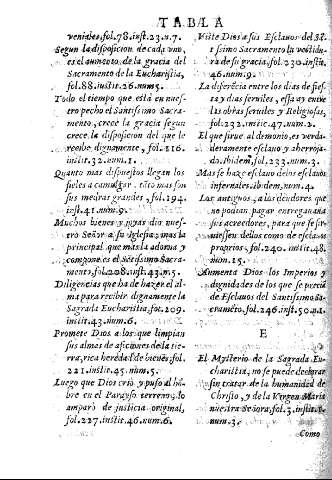 TABLA
veniales, fol. 78. inst. 23. n. 7.
Segun la disposicion de cada uno,
es el aumento de la gracia del
Sacramento de la Eucharistia,
fol. 88. instit. 26. num. 5.
Todo el tiempo que està en nues-
tro pecho el Santissimo Sacra-
mento, crece la gracia segun
crece la disposicion del que le
recibe dignamente, fol. 116.
instit. 32. num. 1.
Quanto mas dispuestos llegan los
fieles a comulgar, tãto mas son
sus medras grandes, fol. 194.
inst. 41. num. 9.
Muchos bienes y joyas dio nues-
tro Señor a su Iglesia; mas la
principal que mas la adorna y
compone es el Sãtissimo Sacra-
mento, fol. 208. instit. 43. m. 5.
Diligencias que ha de hazer el al-
ma para recibir dignamente la
Sagrada Eucharistia, fol. 209.
instit. 43. num. 6.
Promete Dios a los que limpian
sus almas de aficiones de la tie-
rra, rica heredad de bienes, fol.
221. instit. 45. num. 5.
Luego que Dios criò y puso al hõ-
bre en el Parayso terreno, lo
amparò de justicia original,
fol. 227. instit. 46. num. 6.
Viste Dios a sus Esclavos del Sã-
tissimo Sacramento la vestidu-
ra de su gracia, fol. 230. instit.
46. num. 9.
La diferẽcia entre los dias de fies-
ta y dias serviles, essa ay entre
las obras serviles y Religiosas,
fol. 233. instit. 47. num. 2.
El que sirve al demonio, es verda-
deramente esclavo, y aherroja-
do, ibidem, fol. 233. num. 3.
Mas se haze esclavo de los esclavos
infernales, ibidem, num. 4.
Los antiguos, a los deudores que
no podian pagar entregavan a
sus acreedores, para que se sir-
viessen dellos como de esclavos
proprios, fol. 240. instit. 48.
num. 15.
Aumenta Dios los Imperios y
dignidades de los que se precia
de Esclavos del Santissimo Sa-
cramẽto, fol. 246. inst. 50. n. 4.
E
El Mysterio de la Sagrada Eu-
charistia, no se puede declarar
sin tratar de la humanidad de
Christo, y de la Virgen Maria
nuestra Señora, fol. 3. instit. 1.
num. 3.
Como